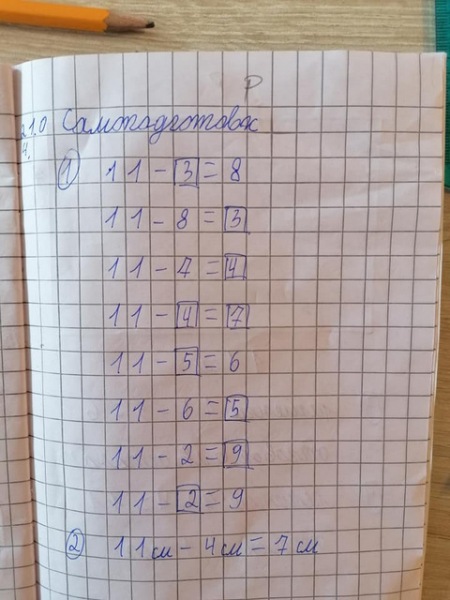 р
21.0 Самоподготовка
4.
① 11 - 3 = 8
11 - 8 = 3
11 - 7 = 4
11 - 4 = 7
11 - 5 = 6
11 - 6 = 5
11 - 2 = 9
11 - 2 = 9
② 11 см - 4 см = 7 см